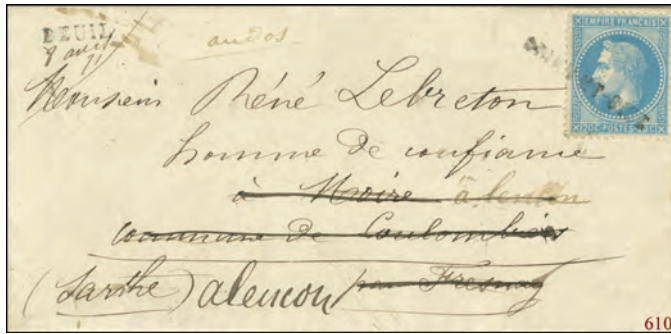 DEUIL
9 avril
71
au dos
EMPIRE FRANÇAIS
20 C POSTES 20 C
Monsieur Réné Lebreton
homme de confiance
à Moire à lencon
commune de Coulombiers
(Sarthe) alencon par Fresnay
610